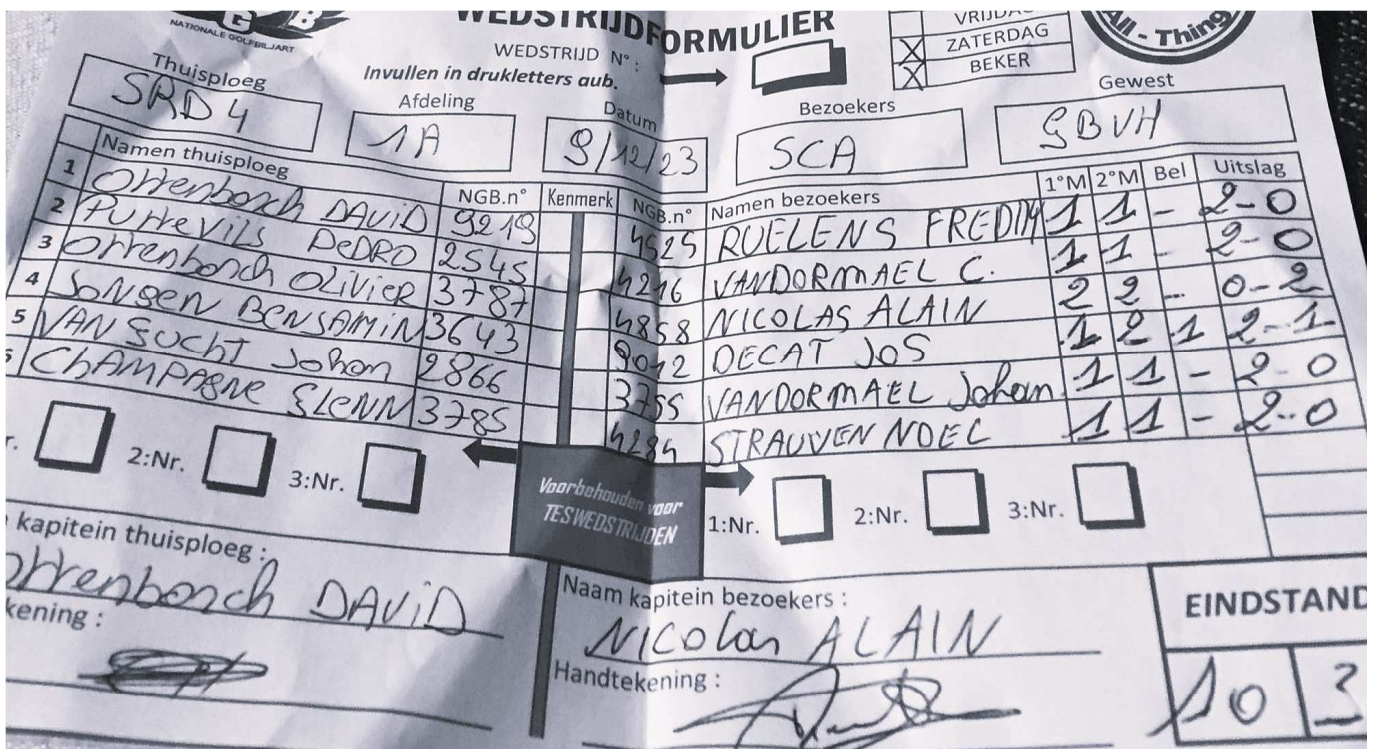 NATIONALE GOLFBILJART
WEDSTRIJDFORMULIER
WEDSTRIJD N° :
Invullen in drukletters aub.
X ZATERDAG
X BEKER
All - Thing
Thuisploeg Afdeling Datum Bezoekers Gewest
SRD 4 1A 9/12/23 SCA GBVH
Namen thuisploeg NGB.n° Kenmerk NGB.n° Namen bezoekers 1°M 2°M Bel Uitslag
1 Ottenbosch DAViD 9219 4525 RUELENS FREDDY 1 1 - 2-0
2 PUTTEViLS PeDRO 2545 4216 VANDORMAEL C. 1 1 2-0
3 Ottenbosch OLiViER 3787 4858 NICOLAS ALAIN 2 2 - 0-2
4 JONGEN BENJAMIN 3643 9012 DECAT JOS 1 2 1 2-1
5 VAN GUCHT Johan 2866 3755 VANDORMAEL Johan 1 1 - 2-0
ChAMPAGNE GLENN 3785 4284 STRAUVEN NOEL 1 1 - 2-0
2:Nr. 3:Nr.
Voorbehouden voor
TESWEDSTRIJDEN
1:Nr. 2:Nr. 3:Nr.
kapitein thuisploeg :
Ottenbosch DAViD
Naam kapitein bezoekers :
NICOLAS ALAIN
Handtekening :
EINDSTAND
10 3